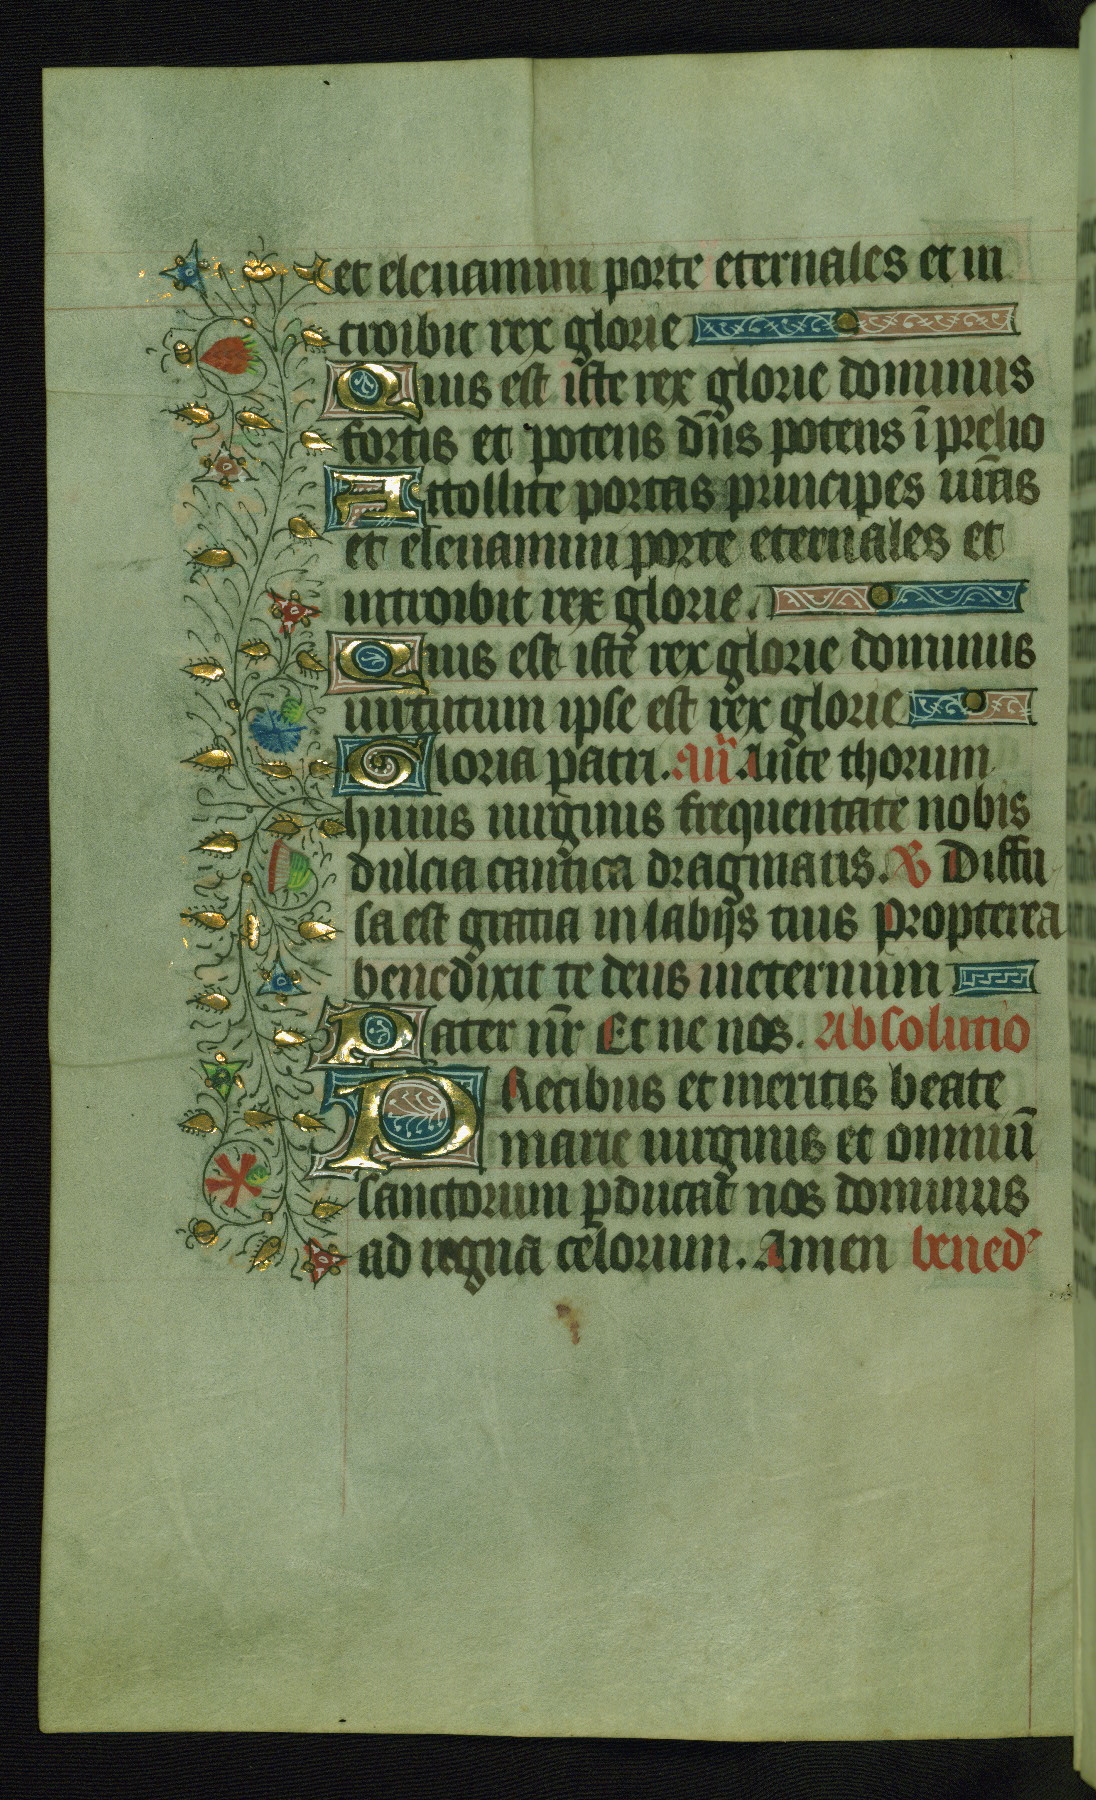 et eleuamini porte eternales et in
troibit rex glorie
Quis est iste rex glorie dominus
fortis et potens dn̄s potens ī prelio
Attollite portas principes ur̄as
et eleuamini porte eternales et
introibit rex glorie.
Quis est iste rex glorie dominus
uirtutum ipse est rex glorie
Gloria patri. An̄ Ante thorum
huius uirginis frequentate nobis
dulcia cantica dragmatis. ℣ Diffu
sa est gratia in labijs tuis Propterea
benedixit te deus ineternum
Pater nr̄ Et ne nos. Absolutio
PRecibus et meritis beate
marie uirginis et omniū
sanctorum ꝑducat nos dominus
ad regna celorum. Amen bened